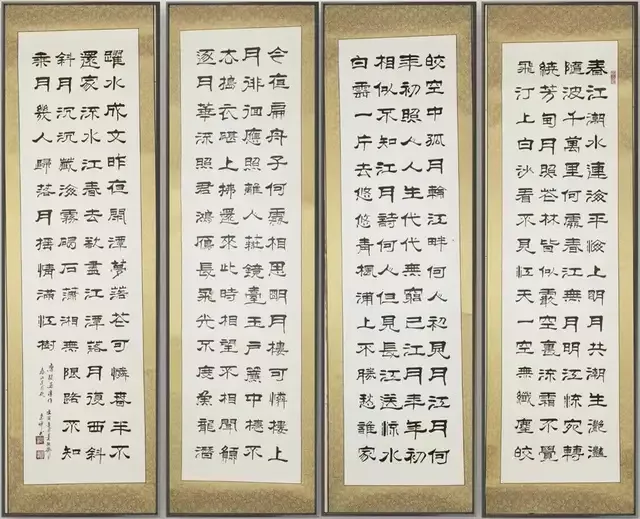 春江潮水連海平海上明月共潮生灧灧
隨波千萬里何處春江無月明江流宛轉
繞芳甸月照花林皆似霰空裏流霜不覺
飛汀上白沙看不見江天一空無纖塵皎
皎空中孤月輪江畔何人初見月江月何
年初照人人生代代無窮已江月年年初
相似不知江月詩何人但見長江送流水
白雲一片去悠悠青楓浦上不勝愁誰家
今夜扁舟子何處相思明月樓可憐樓上
月徘徊應照離人妝鏡臺玉戶簾中捲不
去搗衣砧上拂還來此時相望不相聞願
逐月華流照君鴻雁長飛光不度魚龍潛
躍水成文昨夜閑潭夢落花可憐春半不
還家流水江春去欲盡江潭落月復西斜
斜月沉沉藏海霧碣石瀟湘無限路不知
乘月幾人歸落月搖情滿江樹